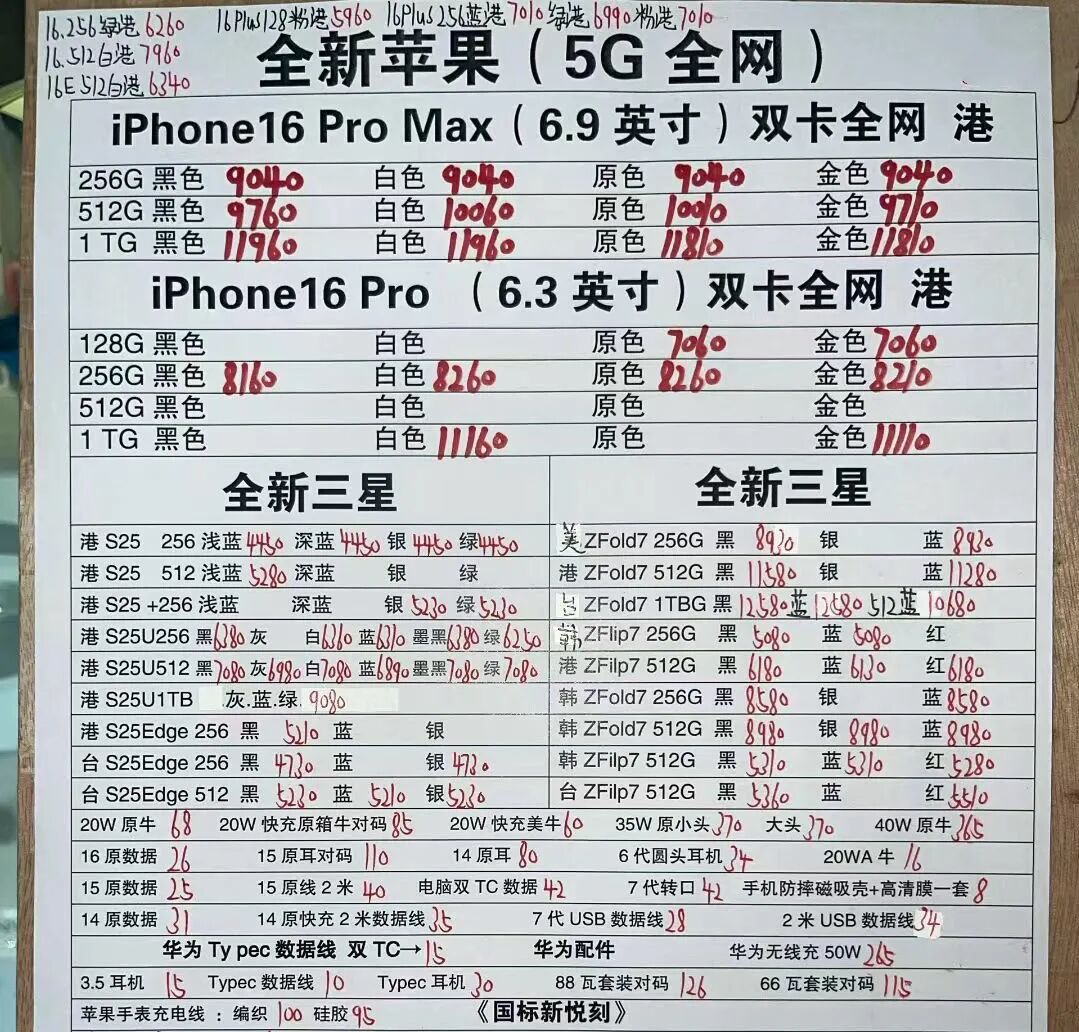 16.256绿港6260 16Plus128粉港5960 16Plus256蓝港7010绿港6990粉港7010
16.512白港7960
16E512白港6340
全新苹果（5G 全网）
iPhone16 Pro Max（6.9 英寸）双卡全网 港
256G 黑色 9040 白色 9040 原色 9040 金色 9040
512G 黑色 9760 白色 10060 原色 10010 金色 9710
1 TG 黑色 11960 白色 11960 原色 11810 金色 11810
iPhone16 Pro （6.3 英寸）双卡全网 港
128G 黑色 白色 原色 7060 金色 7060
256G 黑色 8160 白色 8260 原色 8260 金色 8210
512G 黑色 白色 原色 金色
1 TG 黑色 白色 11160 原色 金色 11110
全新三星
港 S25 256 浅蓝 4450 深蓝 4450 银 4450 绿 4450
港 S25 512 浅蓝 5280 深蓝 银 绿
港 S25 +256 浅蓝 深蓝 银 5230 绿 5230
港 S25U256 黑 6380 灰 白 6360 蓝 6310 墨黑 6380 绿 6250
港 S25U512 黑 7080 灰 6980 白 7080 蓝 6890 墨黑 7080 绿 7080
港 S25U1TB 灰.蓝.绿. 9080
港 S25Edge 256 黑 5210 蓝 银
台 S25Edge 256 黑 4730 蓝 银 4730
台 S25Edge 512 黑 5230 蓝 5210 银 5230
全新三星
美 ZFold7 256G 黑 8930 银 蓝 8930
港 ZFold7 512G 黑 11580 银 蓝 11280
台 ZFold7 1TBG 黑 12580 蓝 12580 512蓝 10680
韩 ZFlip7 256G 黑 5080 蓝 5080 红
港 ZFilp7 512G 黑 6180 蓝 6130 红 6180
韩 ZFold7 256G 黑 8580 银 蓝 8580
韩 ZFold7 512G 黑 8980 银 8980 蓝 8980
韩 ZFilp7 512G 黑 5310 蓝 5310 红 5280
台 ZFilp7 512G 黑 5360 蓝 红 5510
20W 原牛 68 20W 快充原箱牛对码 85 20W 快充美牛 60 35W 原小头 370 大头 370 40W 原牛 365
16 原数据 26 15 原耳对码 110 14 原耳 80 6 代圆头耳机 34 20WA 牛 16
15 原数据 25 15 原线 2 米 40 电脑双 TC 数据 42 7 代转口 42 手机防摔磁吸壳+高清膜一套 8
14 原数据 31 14 原快充 2 米数据线 35 7 代 USB 数据线 28 2 米 USB 数据线 34
华为 Ty pec 数据线 双 TC→15 华为配件 华为无线充 50W 265
3.5 耳机 15 Typec 数据线 10 Typec 耳机 30 88 瓦套装对码 126 66 瓦套装对码 115
苹果手表充电线 ： 编织 100 硅胶 95 《国标新悦刻》